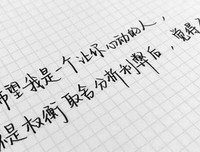 希望我是一个让你心动的人，
是权衡取舍分析利弊后，觉得